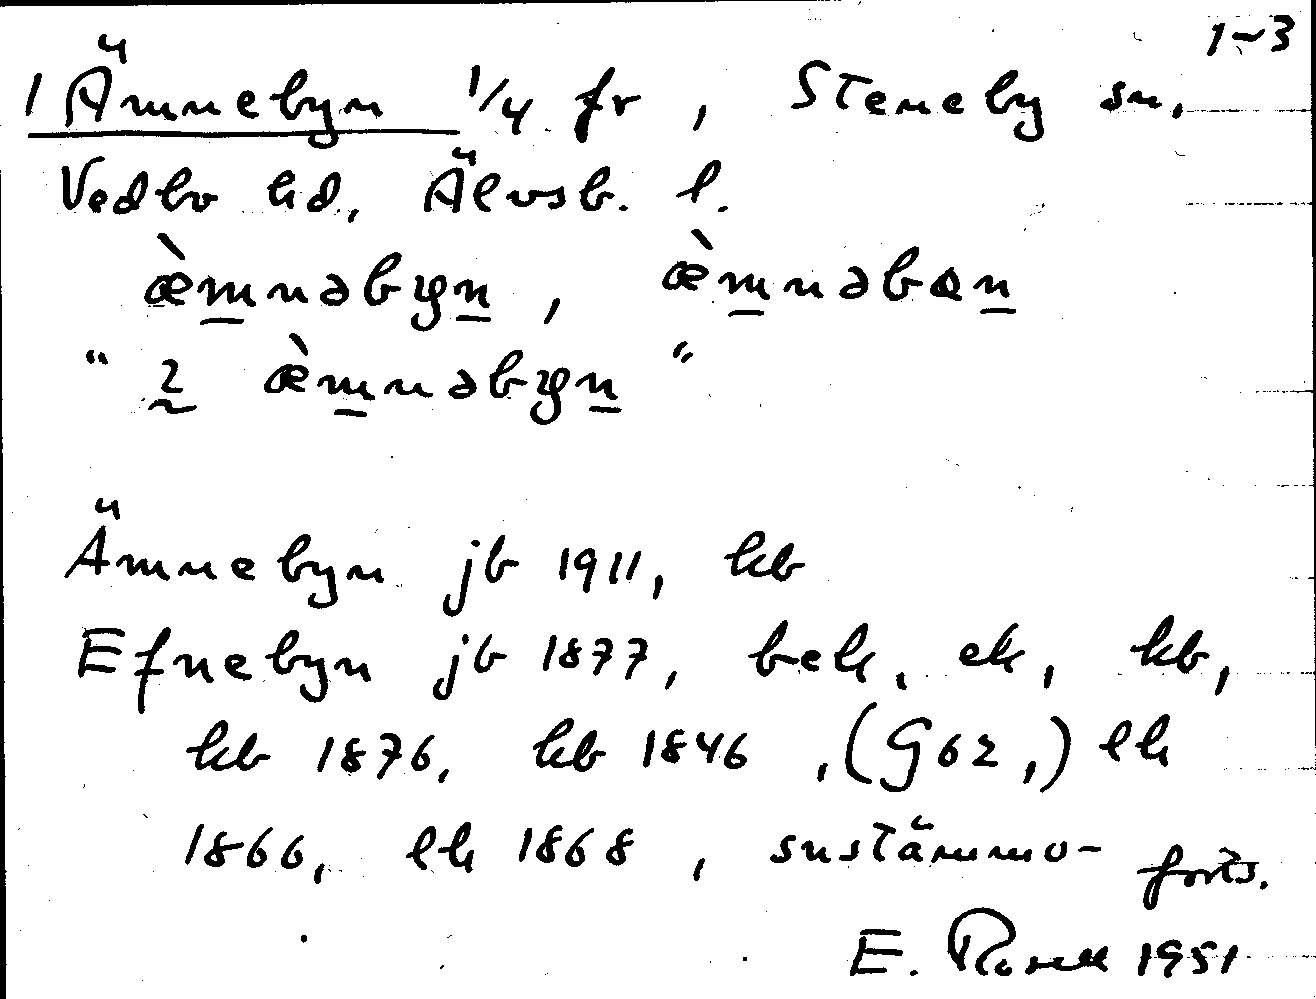 1~3
1 Ämnebyn 1/4 fr, Steneby sn,
Vedbo hd, Älvsb. l.
æ̀m̲nəbyn̲, æ̀m̲nəbɵn̲
" 2 æ̀m̲nəbyn̲ "
Ämnebyn jb 1911, kb
Efnebyn jb 1877, bek, ek, kb,
kb 1876, kb 1846, (G62,) lh
1866, lh 1868, snstämmo-
forts.
E. Rosell 1951